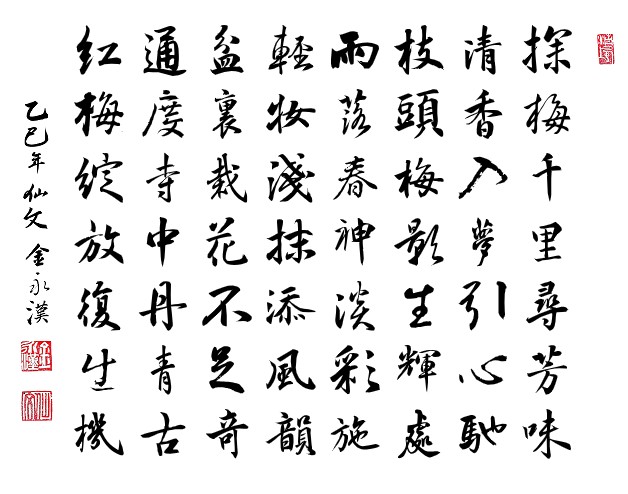 探梅千里尋芳味
清香入夢引心馳
枝頭梅影生輝處
雨落春神淡彩施
輕妝淺抹添風韻
盆裏栽花不足奇
通度寺中丹青古
紅梅綻放復生機
乙巳年仙文金永漢